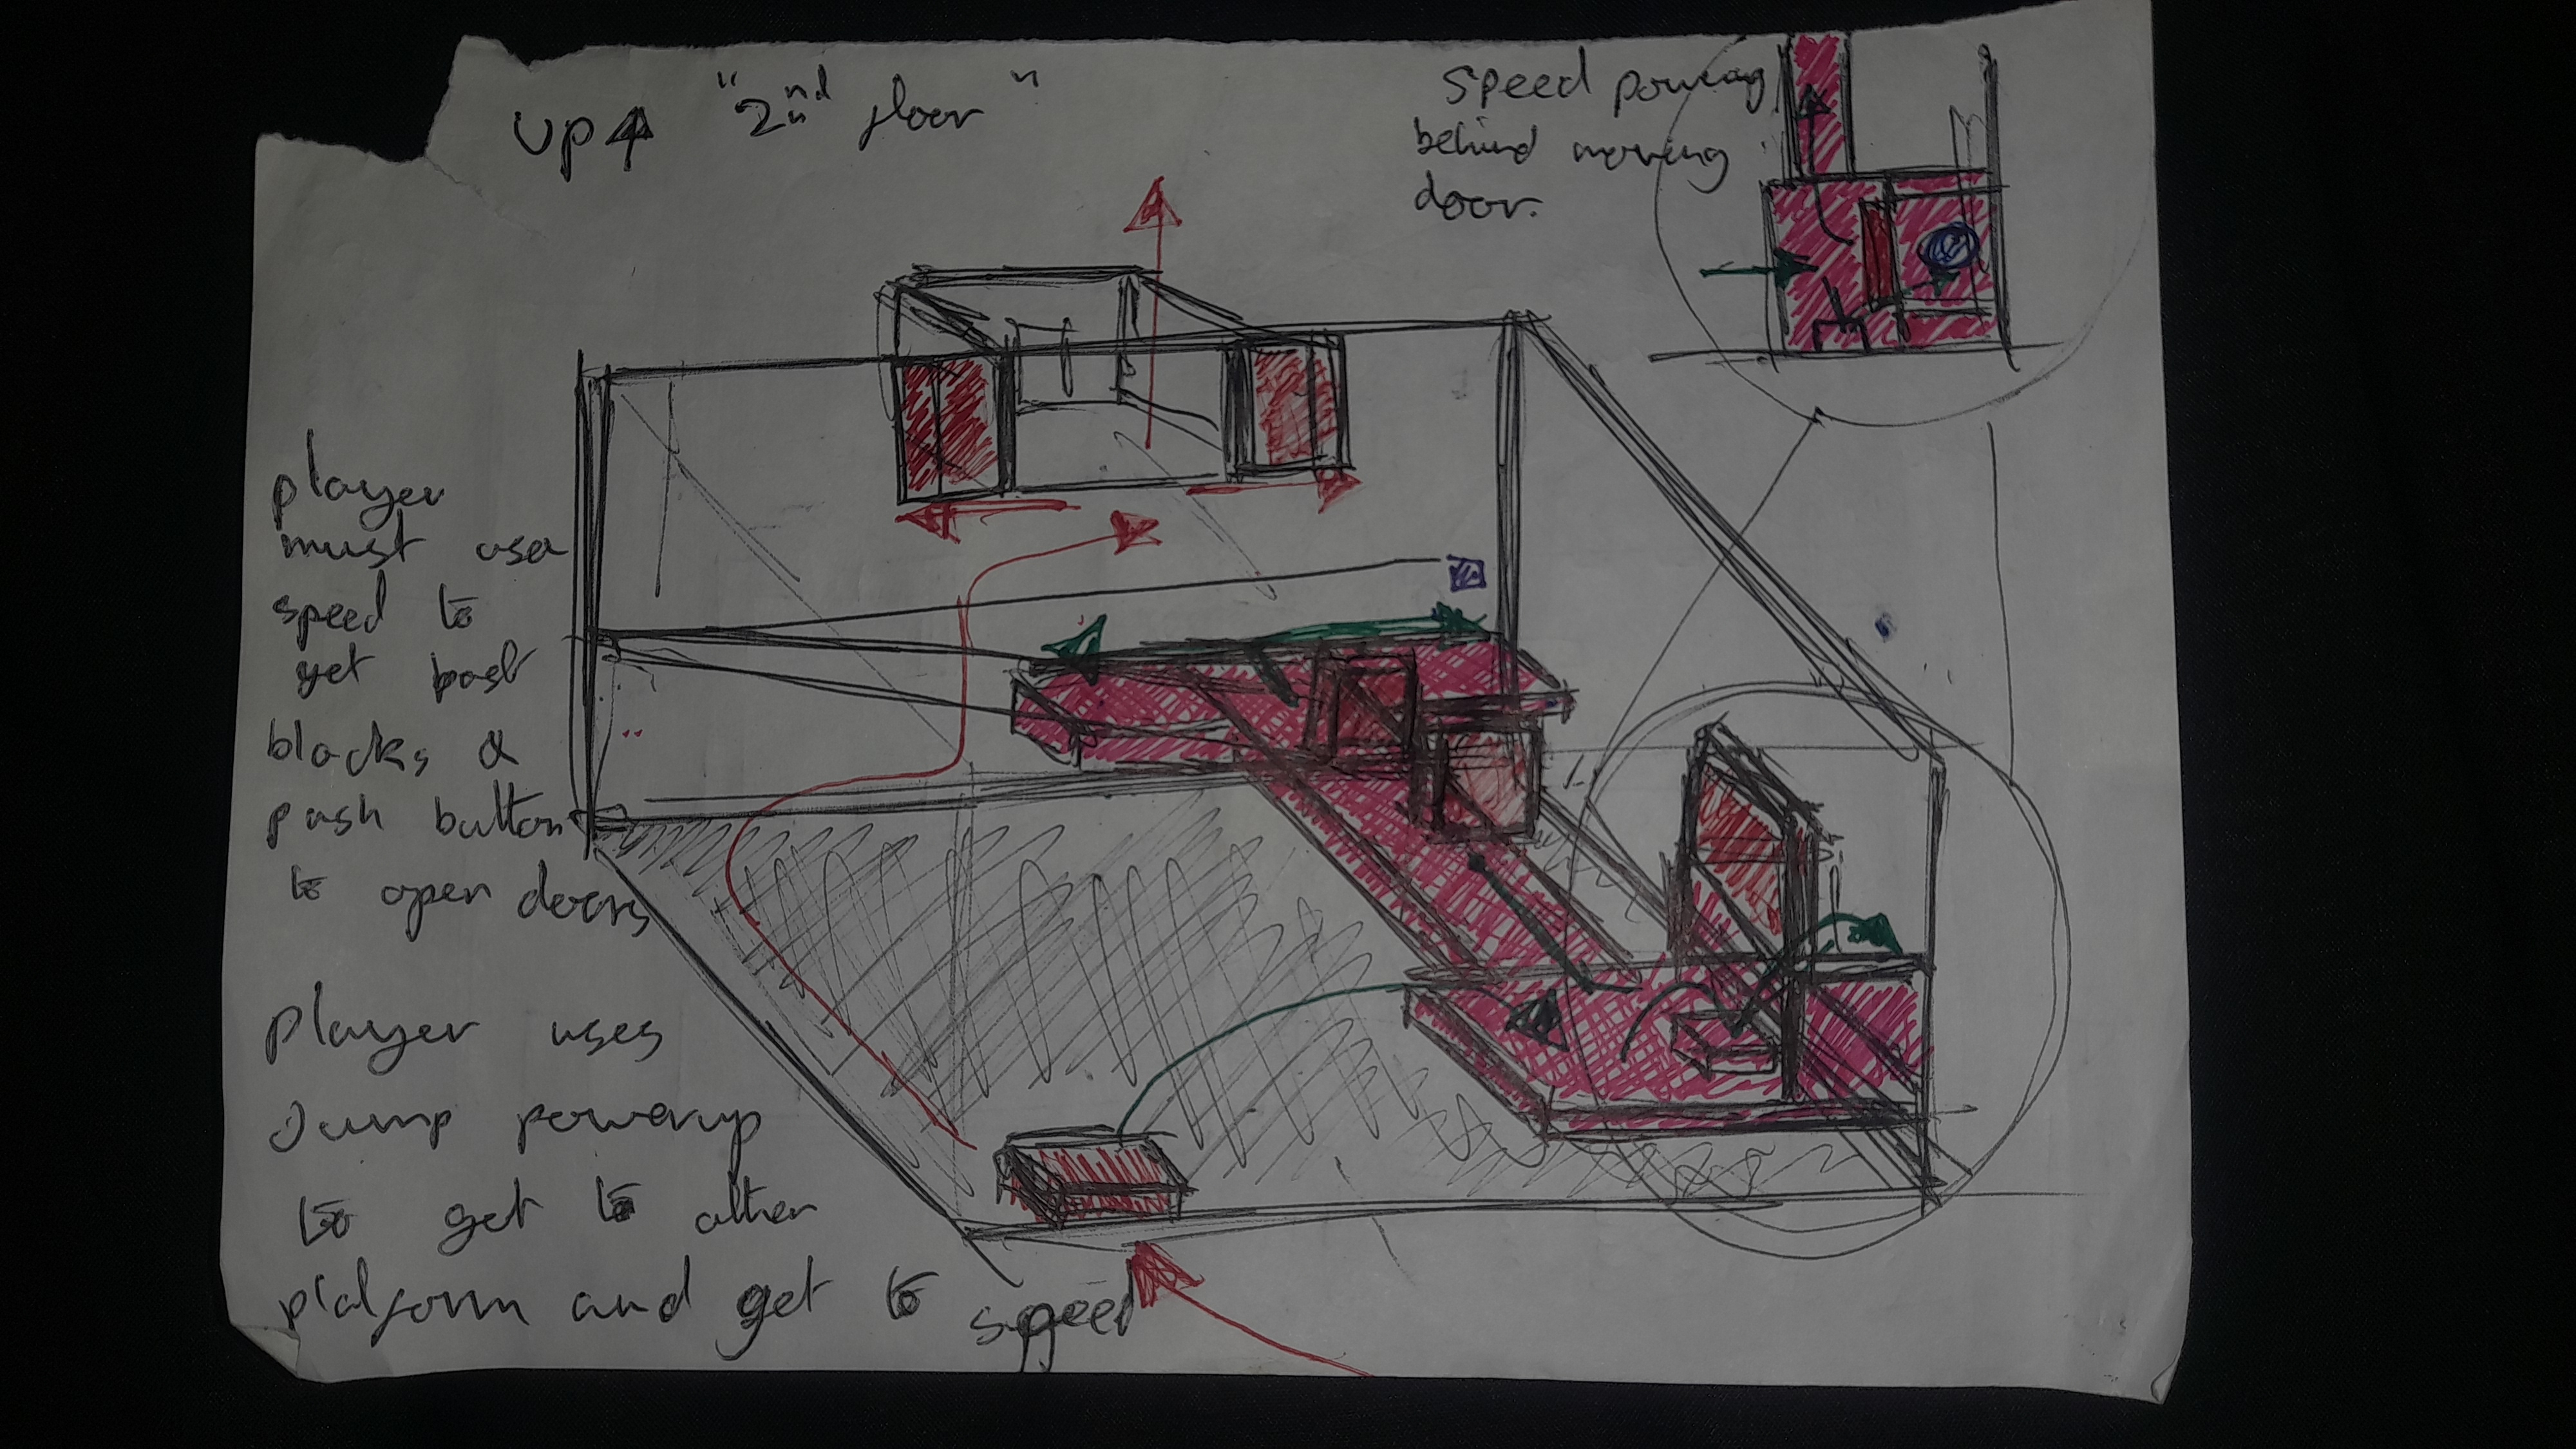 UP "2nd floor"
speed powerup
behind moving
door.
player
must use
speed to
get past
blocks &
push button
to open doors
player uses
Jump powerup
to get to other
platform and get to speed